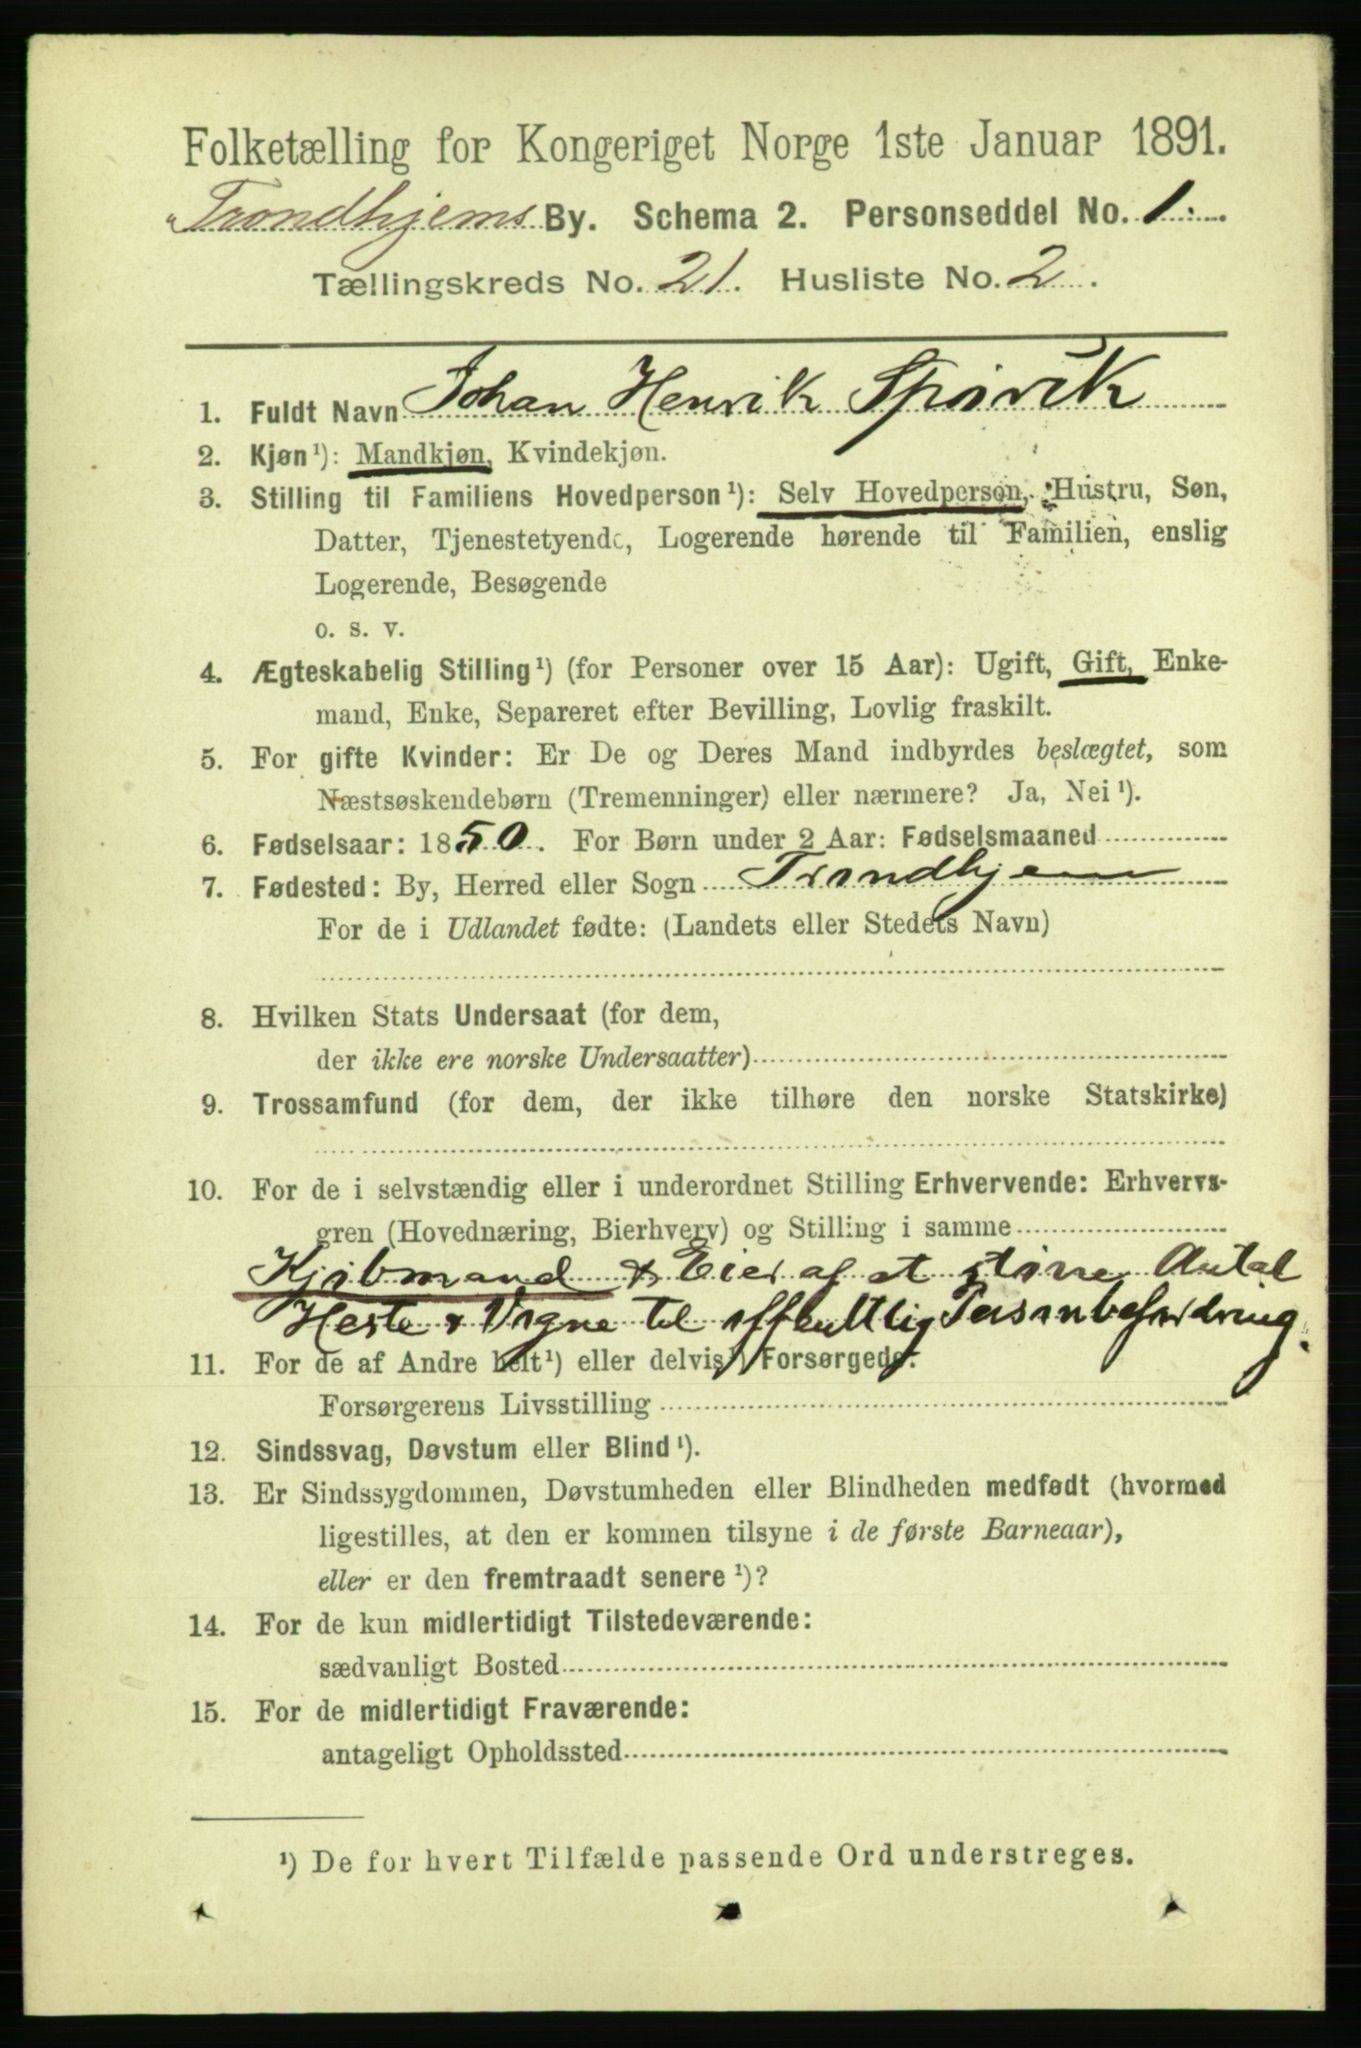 Folketælling for Kongeriget Norge 1ste Januar 1891.
Trondhjems By. Schema 2. Personseddel No. 1.
Tællingskreds No. 21. Husliste No. 2.
1. Fuldt Navn Johan Henrik
2. Kjøn¹): Mandkjøn, Kvindekjøn.
3. Stilling til Familiens Hovedperson¹): Selv Hovedperson, Hustru, Søn,
Datter, Tjenestetyende, Logerende hørende til Familien, enslig
Logerende, Besøgende
o. s. v.
4. Ægteskabelig Stilling¹) (for Personer over 15 Aar): Ugift, Gift, Enke-
mand, Enke, Separeret efter Bevilling, Lovlig fraskilt.
5. For gifte Kvinder: Er De og Deres Mand indbyrdes beslægtet, som
Næstsøskendebørn (Tremenninger) eller nærmere? Ja, Nei¹).
6. Fødselsaar: 1850. For Børn under 2 Aar: Fødselsmaaned
7. Fødested: By, Herred eller Sogn Trondhjem
For de i Udlandet fødte: (Landets eller Stedets Navn)
8. Hvilken Stats Undersaat (for dem,
der ikke ere norske Undersaatter)
9. Trossamfund (for dem, der ikke tilhøre den norske Statskirke)
10. For de i selvstændig eller i underordnet Stilling Erhvervende: Erhvervs-
gren (Hovednæring, Bierhverv) og Stilling i samme
Kjøbmand & Eier af et større Antal
Heste & Vogne til offentlig Personbefordring.
11. For de af Andre helt¹) eller delvis¹) Forsørgede:
Forsørgerens Livsstilling
12. Sindssvag, Døvstum eller Blind¹).
13. Er Sindssygdommen, Døvstumheden eller Blindheden medfødt (hvormed
ligestilles, at den er kommen tilsyne i de første Barneaar),
eller er den fremtraadt senere¹)?
14. For de kun midlertidigt Tilstedeværende:
sædvanligt Bosted
15. For de midlertidigt Fraværende:
antageligt Opholdssted
¹) De for hvert Tilfælde passende Ord understreges.